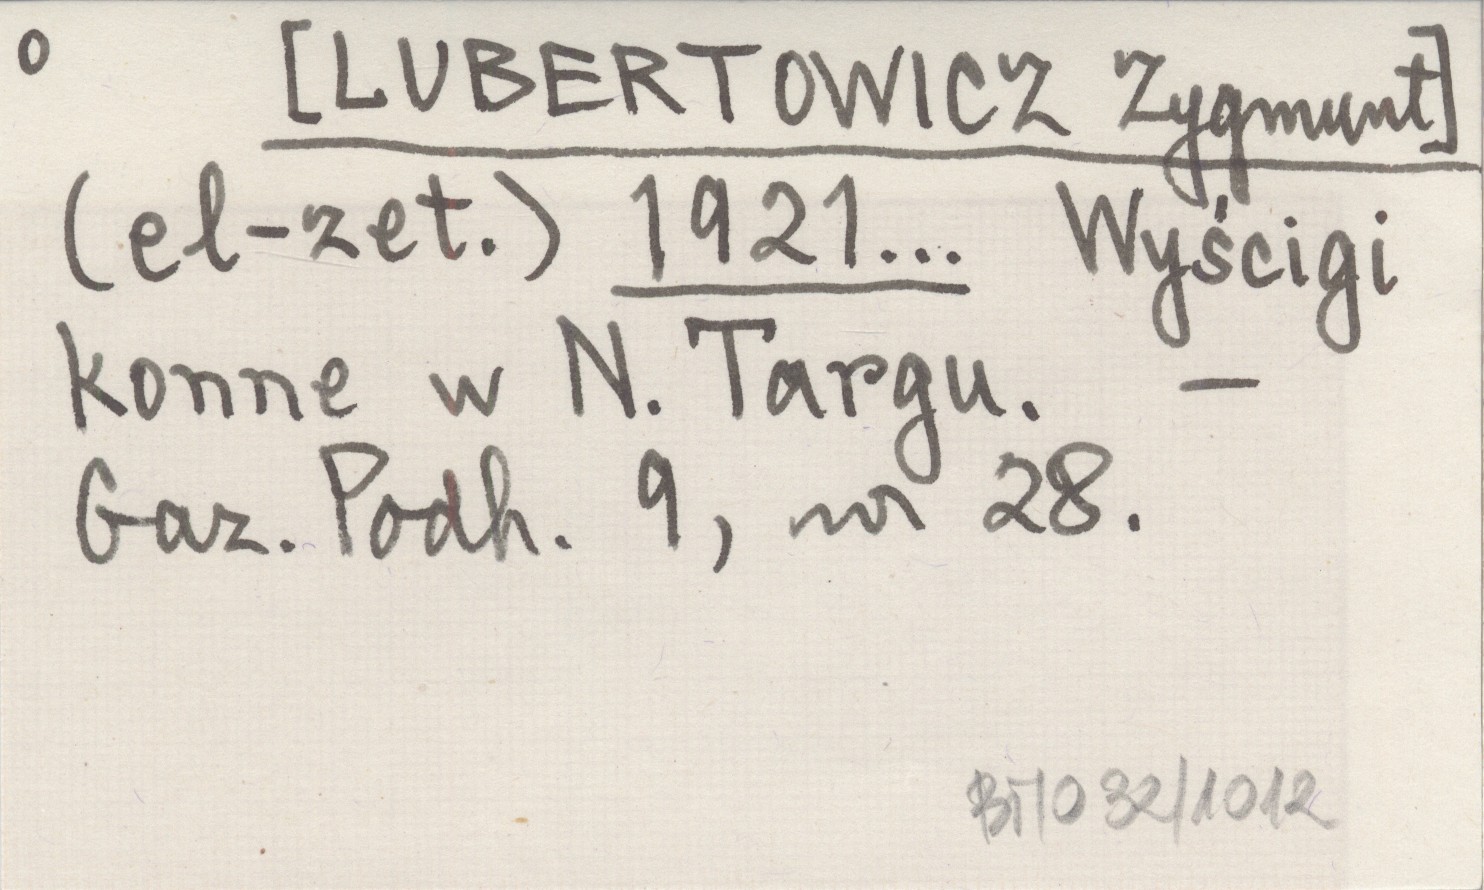 o [LUBERTOWICZ Zygmunt]
(el-zet.) 1921... Wyścigi
konne w N. Targu. —
Gaz. Podh. 9, nr 28.